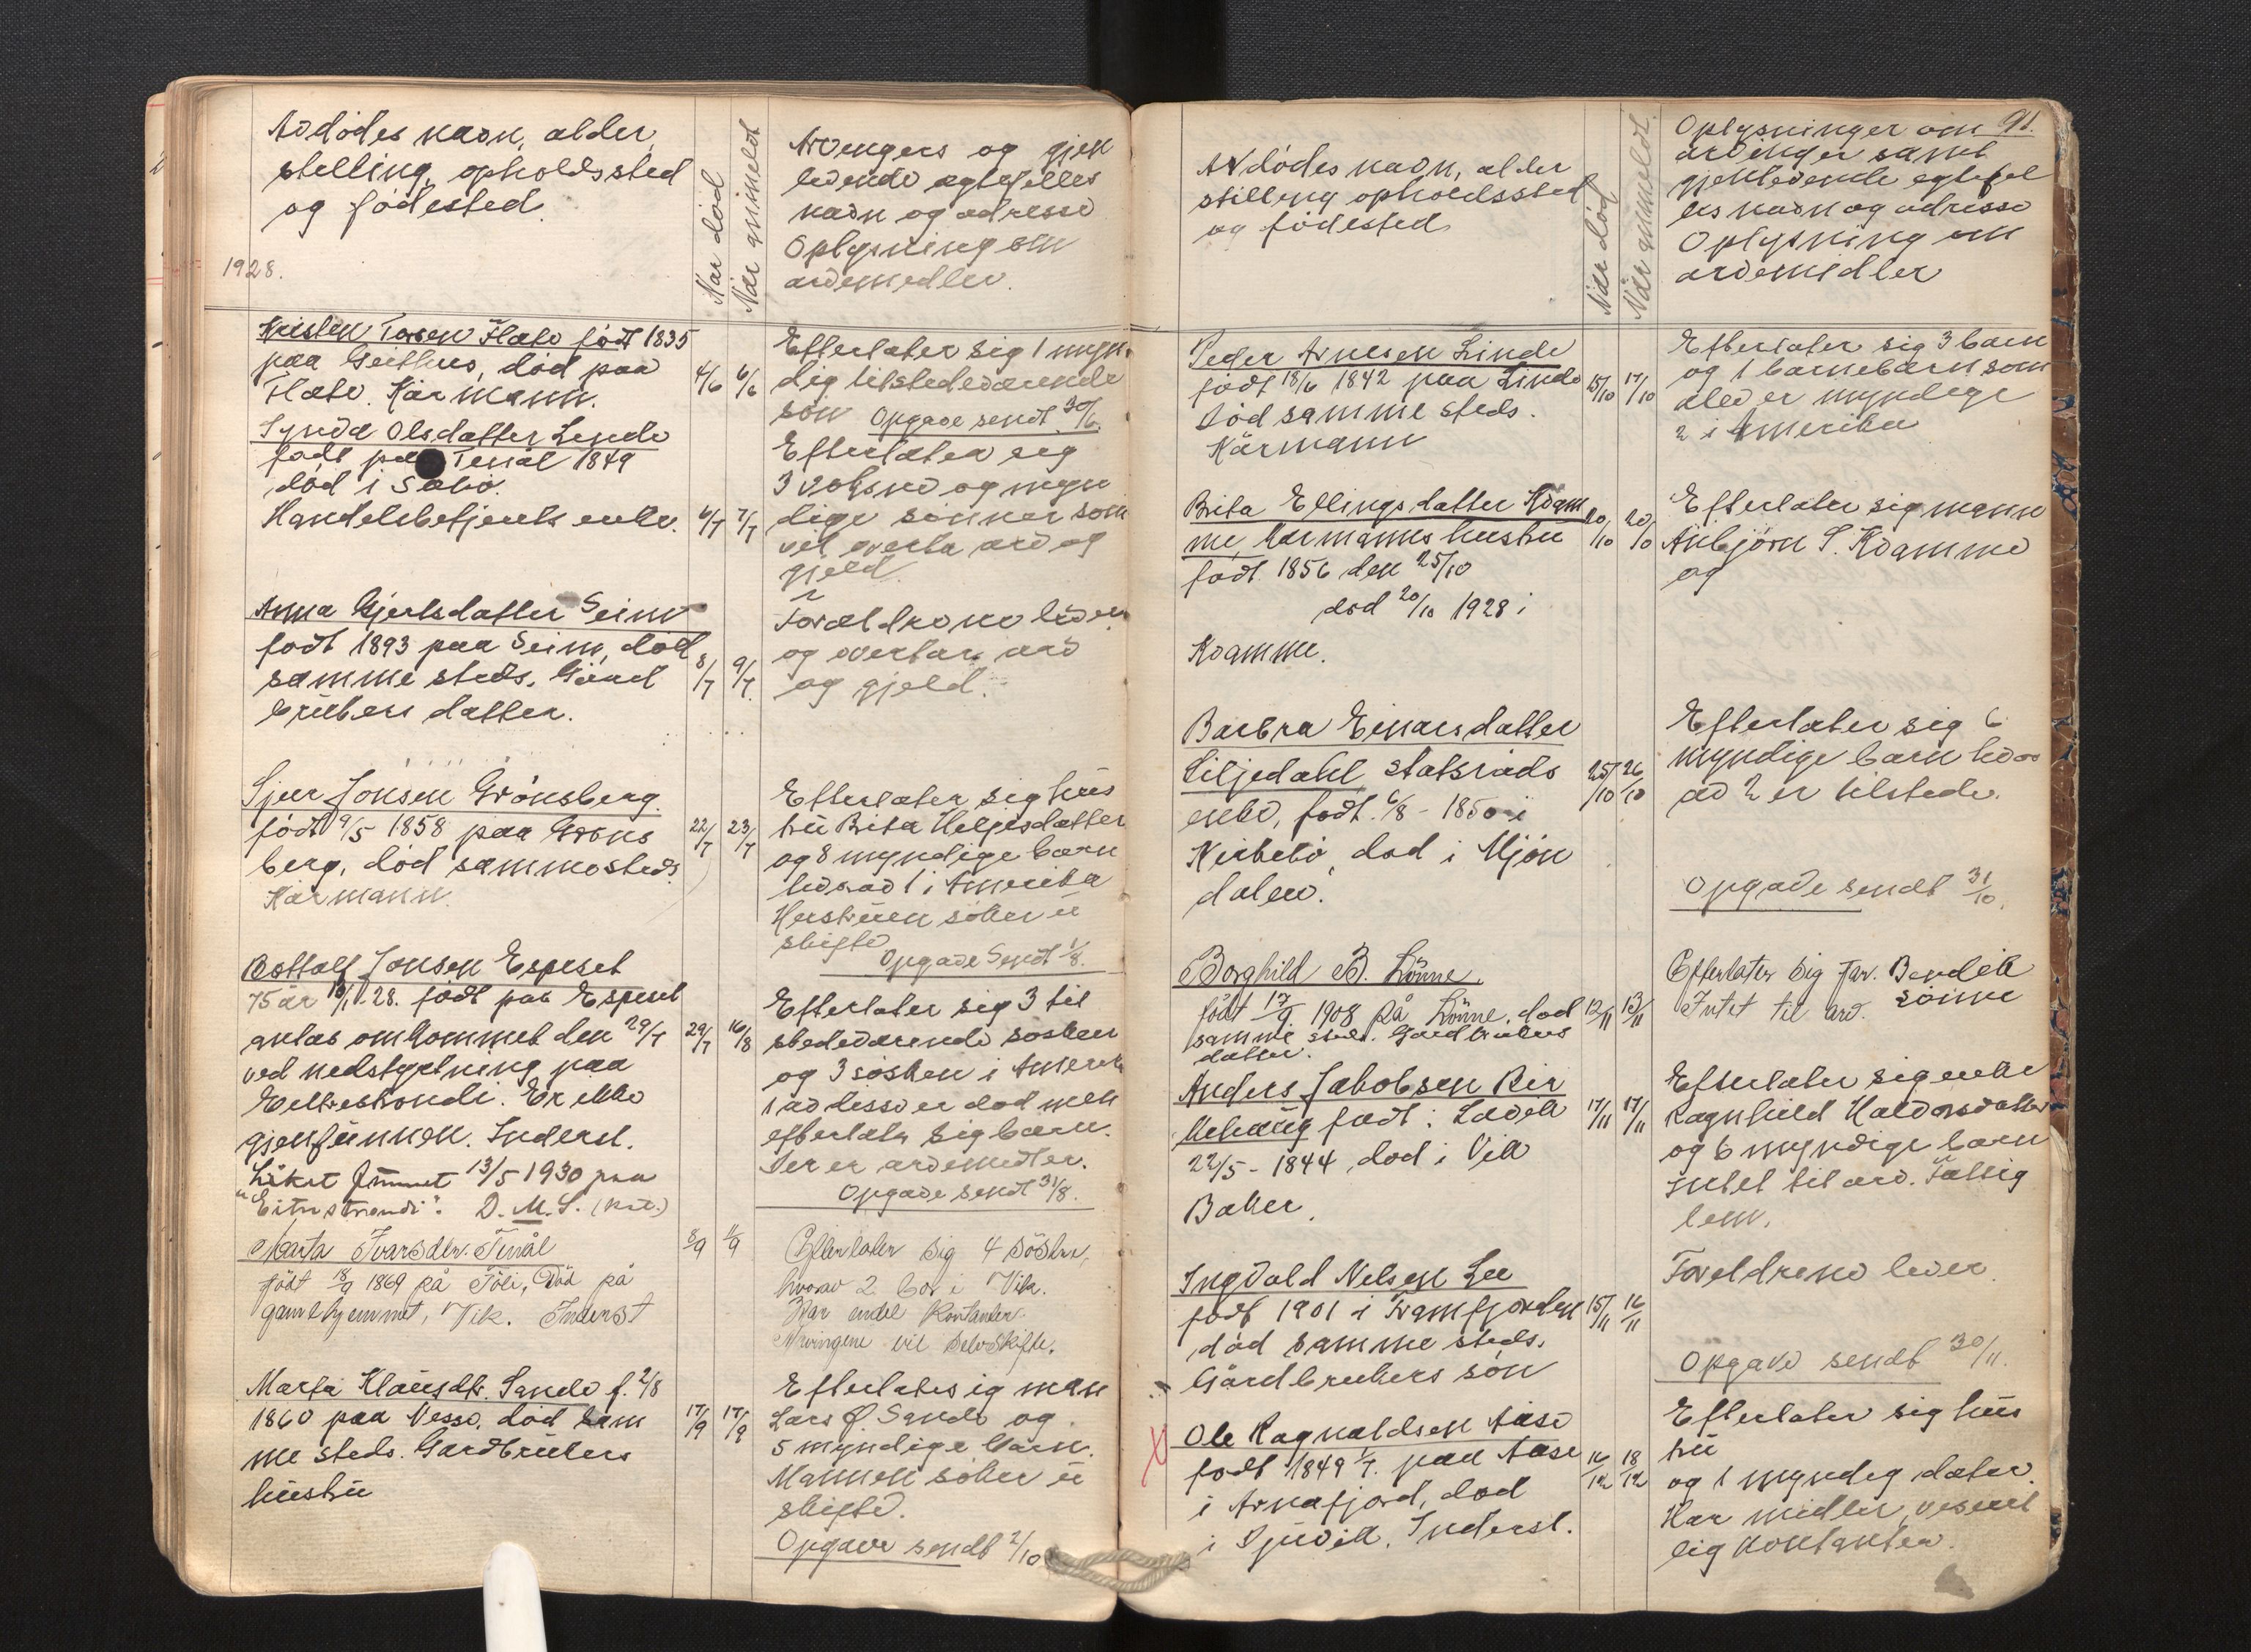 Avdødes navn, alder,
stilling, opholdssted
og fødested.
1928.
Når død
Når anmeldt
Arvingers og gjen
levende egtefelles
navn og adresse
Oplysning om
arvemedler.
Kristen Torsen Flate født 1835
paa Geithus, død paa
Flate. Kårmann.
4/6 6/6
Efterlater sig 1 myn
dig tilstedeværende
søn Opgave sendt 30/6.
Synva Olsdatter Linde
født paa Tenål 1849
død i
Handelsbetjents enke.
6/7 7/7
Efterlater sig
3 voksne og myn
dige sønner som
vil overta arv og
gjeld.
Anna Gjertsdatter Seim
født 1893 paa Seim, død
samme steds. Gård
brukers datter.
8/7 9/7.
Foreldrene lever
og overtar arv
og gjeld.
Sjur Jonsen Grønsberg.
født 9/5 1858 paa Grøns
berg, død sammesteds.
Kårmann.
22/7 23/7
Efterlater sig hus
tru Brita Helgesdatter
og 8 myndige barn
hvorav 1 i Amerika
Hustruen søker u
skifte
Opgave Sendt 1/8.
Bottolf Jonsen Espeset
75 år 28. født paa Espeset
antas omkommet den 29/7
ved nedstyrtning paa
Eitrestrondi. Er ikke
gjenfunnen. Inderst.
Liket funnet 13/5 1930 paa
"Eitrestrondi". D. M. S.
29/7 16/8
Efterlater sig 3 til
stedeværende søsken
og 3 søsken i Amerika
1 av disse er død men
efterlater sig barn.
Der er arvemedler.
Opgave sendt 31/8.
Marta Ivarsdtr. Tenål
født 18/9 1869 på Død på
gamlehjemmet, Vik. Inderst
8/9 11/9
Efterlater sig 4 søsken,
hvorav 2 bor i Vik.
Har endel kontanter
Arvingene vil selvskifte.
Marta Klausdtr. Sande f. 2/8
1860 paa Nesse. død sam
me steds. Gardbrukers
hustru
17/9 17/9
Efterlates ig man
Lars O Sande og
5 myndige barn.
Mannen søker u
skifte.
Opgave sendt 2/10
91.
Avdødes navn, alder
stilling opholdssted
og fødested
Når død
Når anmeldt.
Oplysninger om
arvinger samt
gjenlevende egtefel
les navn og adresse
Oplysning om
arvemidler
Peder Arnesen Linde
født 18/6 1842 paa Linde
død samme steds.
Kårmann
15/10 17/10
Efterlater sig 3 barn
og 1 barnebarn som
alle er myndige
2 i Amerika
Brita Ellingsdatter Kvam
me, kårmanns hustru
født 1856 den 25/10
død 20/10 1928 i
Kvamme.
20/10 20/10
Efterlater sig mann
Anbjørn S. Kvamme
og
Barbra Einarsdatter
Liljedahl statsråds
enke, født 6/8 - 1850 i
Kirkebø, død i Mjøn
dalen.
25/10 26/10
Efterlater sig 6
myndige barn hvor
av 2 er tilstede.
Opgave sendt 31/10.
Borghild B. Lønne.
født 17/9 1908 på Lønne, død
samme sted. Gardbrukers
datter.
12/11 13/11
Efterlater sig far. Bendik
Lønne
Intet til arv.
Anders Jakobsen Bir
kehaug født i Ladvik
22/5 - 1844, død i Vik
Baker.
17/11 17/11
Efterlater sig enke
Ragnhild Haldorsdatter
og 6 myndige barn
intet til arv. Fattig
lem.
Ingvald Nilsen Lee
født 1901 i Framfjorden
død samme steds.
Gårdbrukers søn
15/11 16/11
Foreldrene lever
Opgave sendt 30/11.
X
Ole Ragnaldsen Aase
født 1849 paa Aase
i Arnafjord, død
i Djuvik. Inderst.
16/12 18/12
Efterlater sig hus
tru
og 1 myndig datter.
Har midler vesent
lig kontanter.